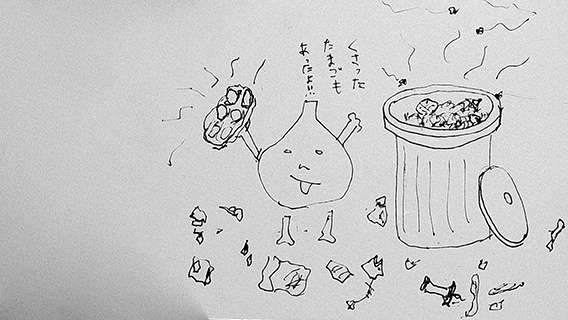 くさった
たまごも
あったよ!!